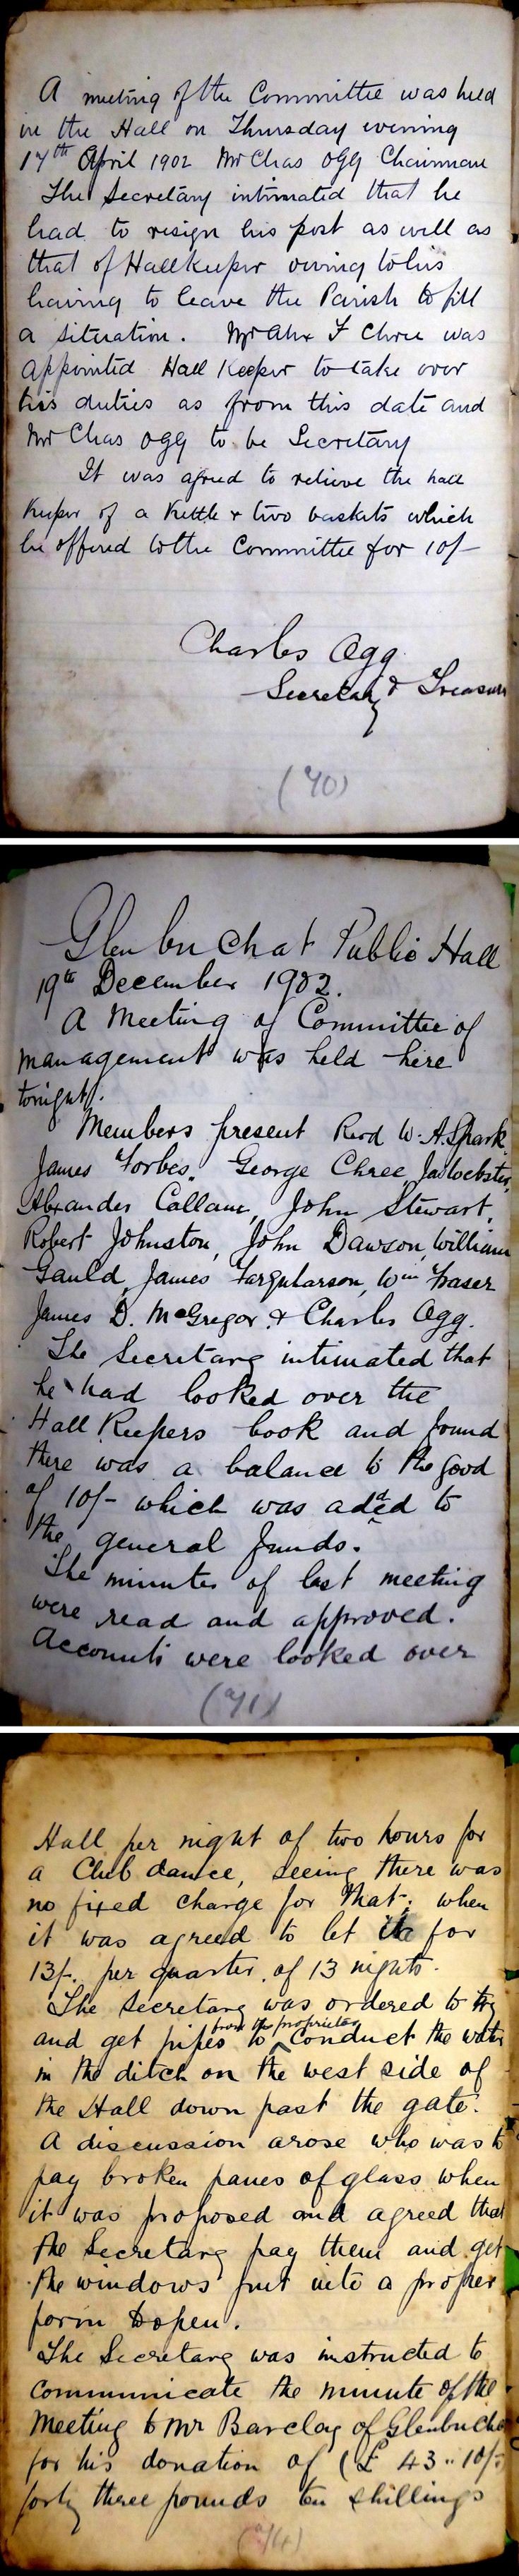 A meeting of the Committee was held
in the Hall on Thursday evening
17th April 1902 Mr Chas Ogg Chairman
The Secretary intimated that he
had to resign his post as well as
that of Hallkeeper owing to his
having to leave the Parish to fill
a situation. Mr Alex F Chree was
appointed Hall Keeper to take over
his duties as from this date and
Mr Chas Ogg to be Secretary
It was agreed to relieve the hall
keeper of a Kettle & two baskets which
he offered to the Committee for 10/-
Charles Ogg
Secretary & Treasurer
(70)
Glenbuchat Public Hall
19th December 1902.
A Meeting of Committee of
management was held here
tonight.
Members present Revd W. A. Spark
James Forbes, George Chree, Jas Webster,
Alexander Callam, John Stewart,
Robert Johnston, John Dawson, William
Gauld, James Farquharson, Wm Fraser
James D. McGregor & Charles Ogg.
The Secretary intimated that
he had looked over the
Hall Keepers book and found
there was a balance to the good
of 10/- which was added to
the general funds.
The minutes of last meeting
were read and approved.
Accounts were looked over
(71)
Hall per night of two hours for
a Club dance, seeing there was
no fixed charge for that; when
it was agreed to let it for
13/- per quarter, of 13 nights.
The Secretary was ordered to try
from the proprietor
and get pipes to conduct the water
in the ditch on the west side of
the Hall down past the gate.
A discussion arose who was to
pay broken panes of glass when
it was proposed and agreed that
the Secretary pay them and get
the windows put into a proper
form to open.
The Secretary was instructed to
communicate the minute of the
Meeting to Mr Barclay of Glenbuchat
for his donation of (£ 43 " 10/-
forty three pounds ten shillings
(74)